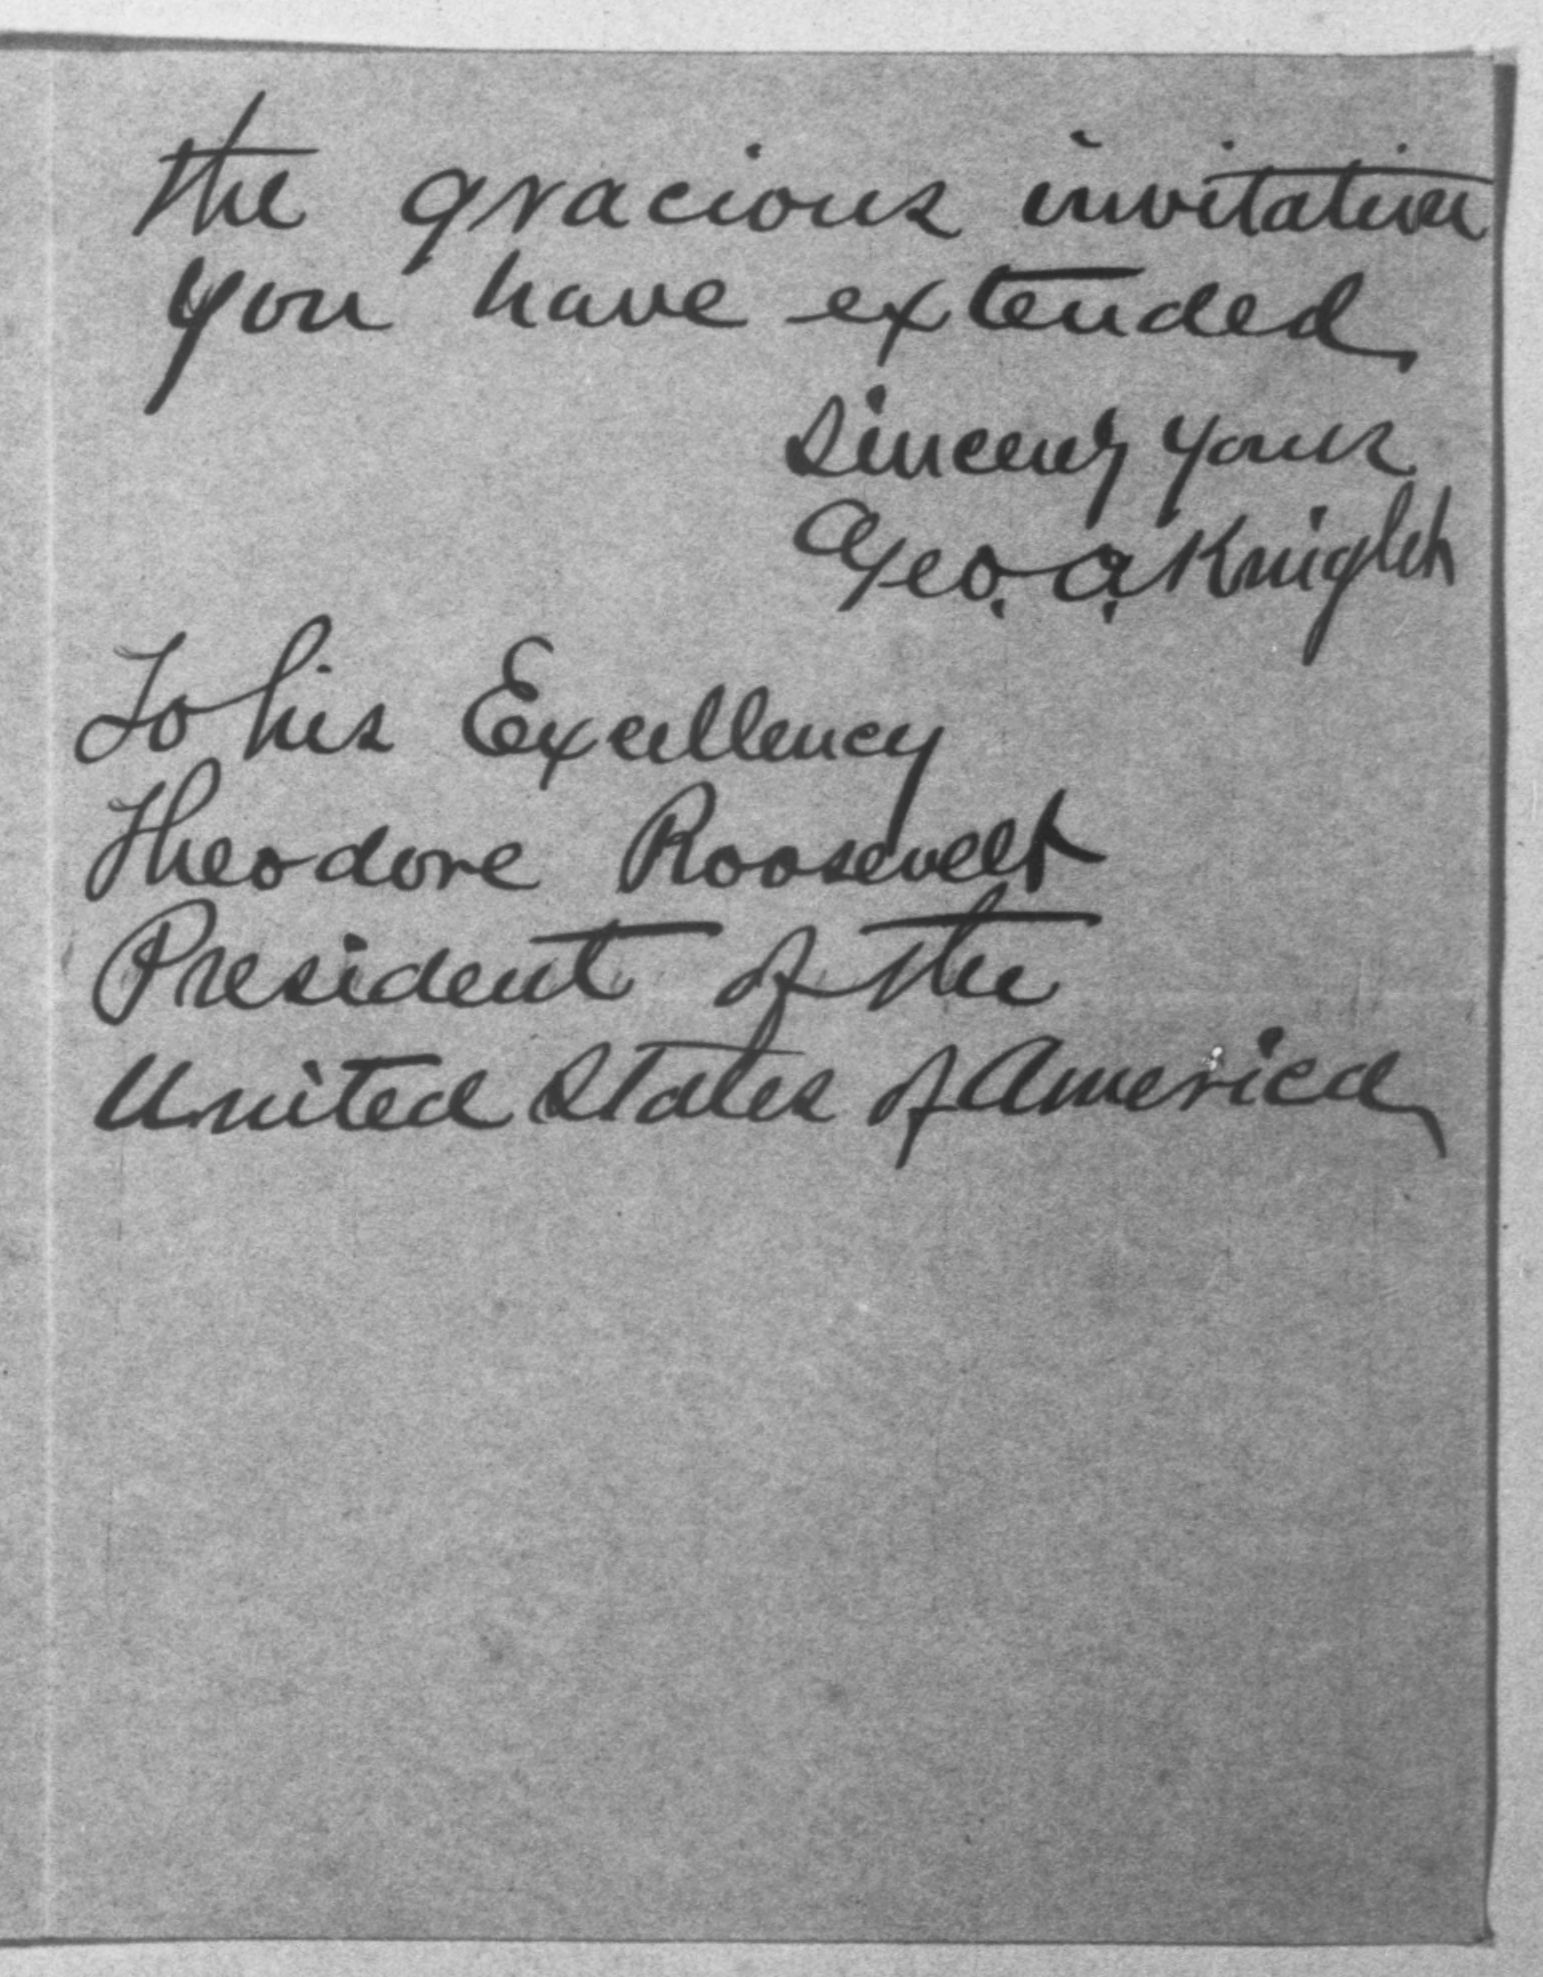 the gracious invitation
you have extended
Sincerely yours
Geo. A. Knight
To his Excellency
Theodore Roosevelt
President of the
United States of America